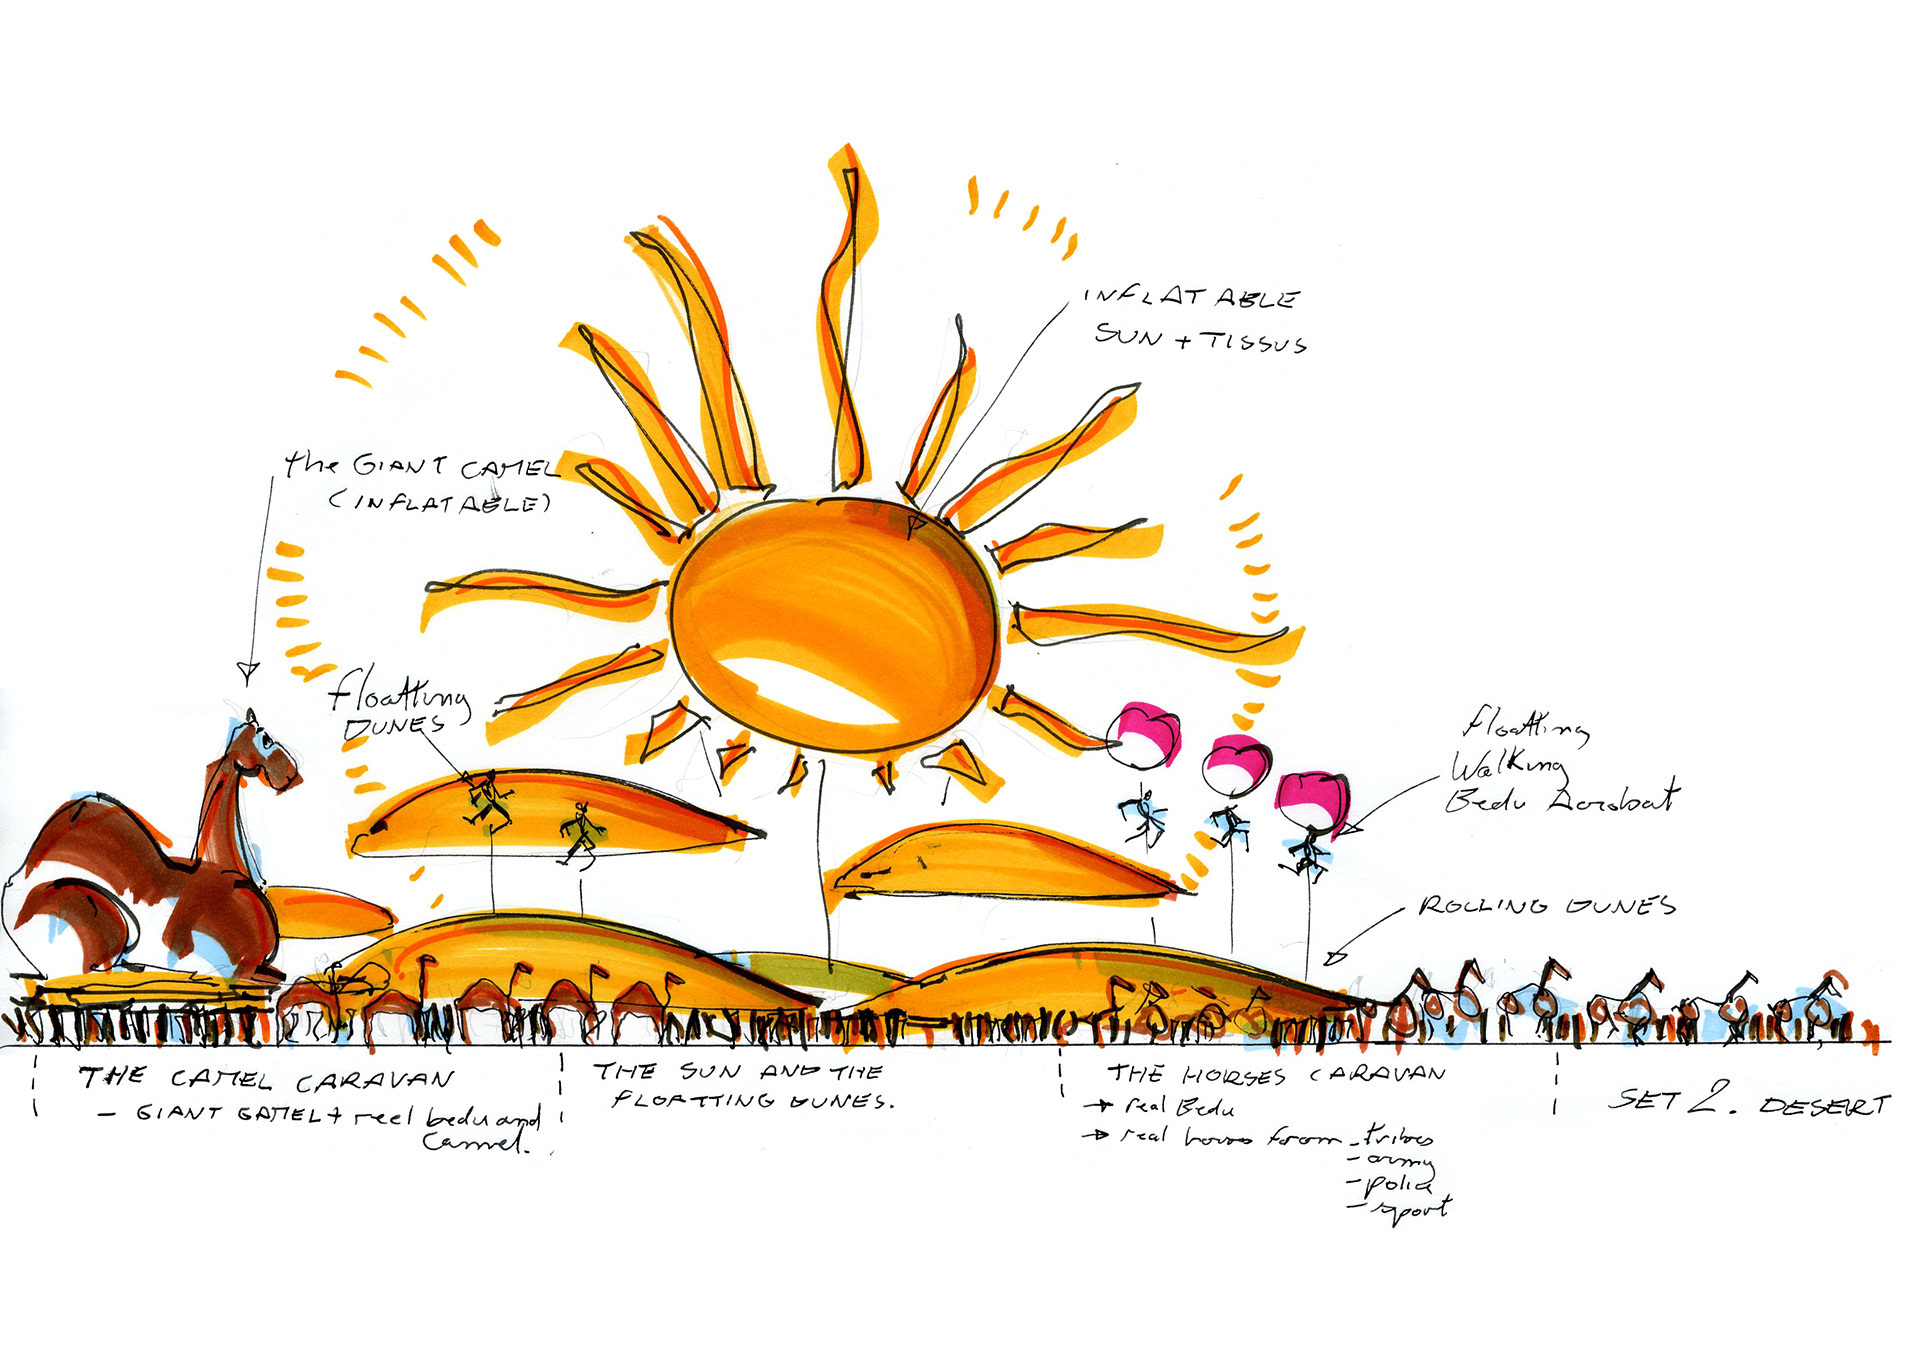 INFLATABLE
SUN + TISSUS
the GIANT CAMEL
(INFLATABLE)
Floatting
DUNES
Floatting
Walking
Bedu Acrobat
ROLLING DUNES
THE CAMEL CARAVAN
- GIANT CAMEL + reel bedu and
Cammel.
THE SUN AND THE
FLOATTING DUNES.
THE HORSES CARAVAN
→ real Bedu
→ real horses from - tribes
- army
- police
- sport
SET 2. DESERT